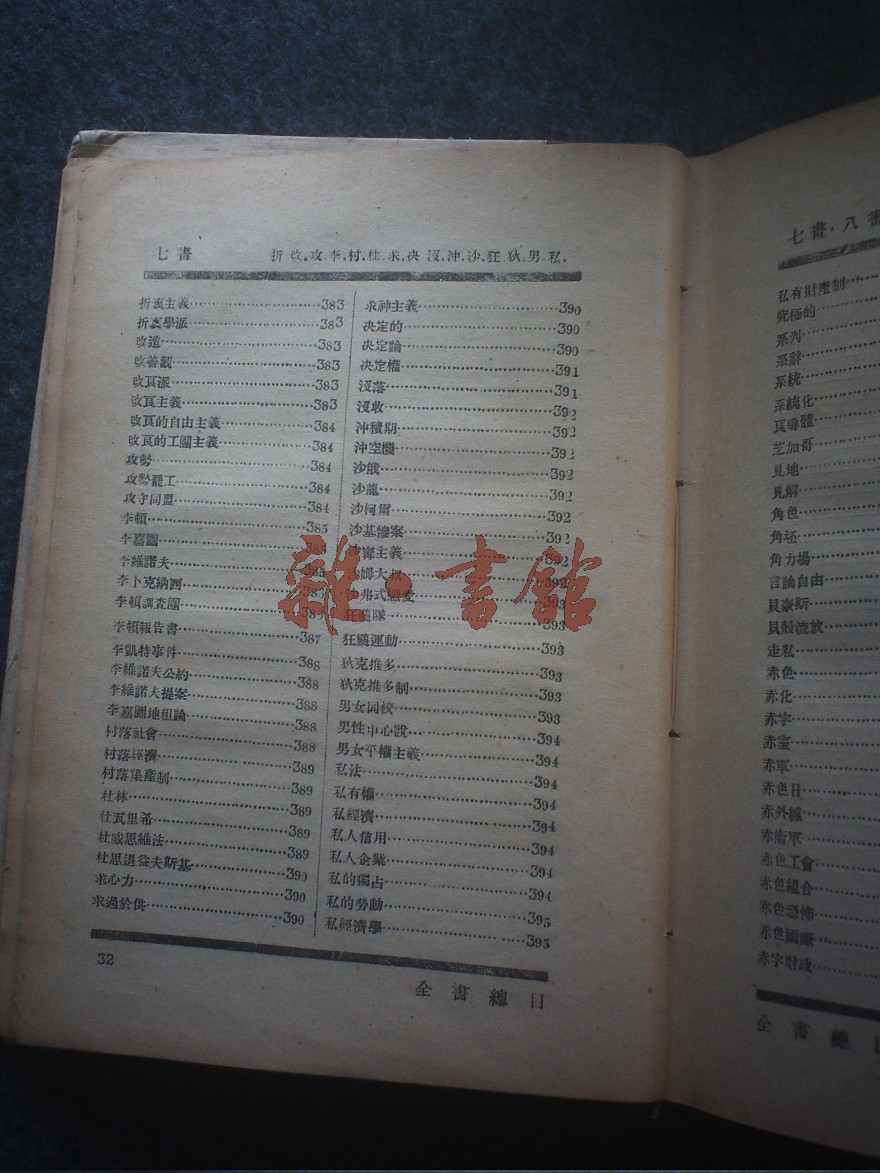 七畫 折.改.攻.李.村.杜.求.決.沒.沖.沙.狂.狄.男.私.
折衷主義 383
折衷學派 383
改造 383
改善觀 383
改良派 383
改良主義 383
改良的自由主義 384
改良的工團主義 384
攻勢 384
攻勢罷工 384
攻守同盟 384
李頓 385
李嘉圖
李維諾夫
李卜克納西
李頓調查團
李頓報告書 387
李凱特事件 388
李維諾夫公約 388
李維諾夫提案 388
李嘉圖地租論 388
村落社會 388
村落經濟 389
村落集產制 389
杜林 389
杜瓦里希 389
杜威思維法 389
杜思退益夫斯基 390
求心力 390
求過於供 390
求神主義 390
決定的 390
決定論 390
決定權 391
沒落 391
沒收 392
沖積期 392
沖空機 392
沙俄 392
沙龍 392
沙柯爾 392
沙基慘案 392
沙甯主義 392
姆大叔 392
弗式戀愛 393
狂飈隊 393
狂飈運動 393
狄克推多 393
狄克推多制 393
男女同校 393
男性中心說 394
男女平權主義 394
私法 394
私有權 394
私經濟 394
私人信用 394
私人企業 394
私的獨占 394
私的勞動 395
私經濟學 395
32
全書總目
雜·書館
七畫.八畫
私有財產制
究極的
系列
系辭
系統
系統化
良導體
芝加哥
見地
見解
角色
角坯
角力場
言論自由
貝裘斯
貝殼流放
走私
赤色
赤化
赤字
赤室
赤軍
赤色日
赤外線
赤衛軍
赤色工會
赤色組合
赤色恐怖
赤色國際
赤字財政
全書總目